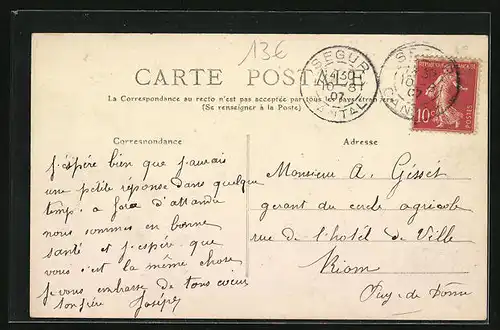 13€
CARTE POSTALE
La Correspondance au recto n'est pas acceptée par tous les pays étrangers
(Se renseigner à la Poste)
SEGUR
10-8
07
CANTAL
SEGUR
10
07
CANTAL
REPUBLIQUE FRANÇAISE
10c
POSTES
Correspondance
j'éspère bien que j'aurais
une petite réponse dans quelque
temp. a fora d'attandu
nous sommes en bonne
santé et j'espér. que
vous s'est la même chose
je vous embrasse de tous coeur
ton frère Joseph
Adresse
Monsieur A. Gisset
gerant du cercle agricole
rue de l'hotel de Ville
Riom
Puy-de-Dôme